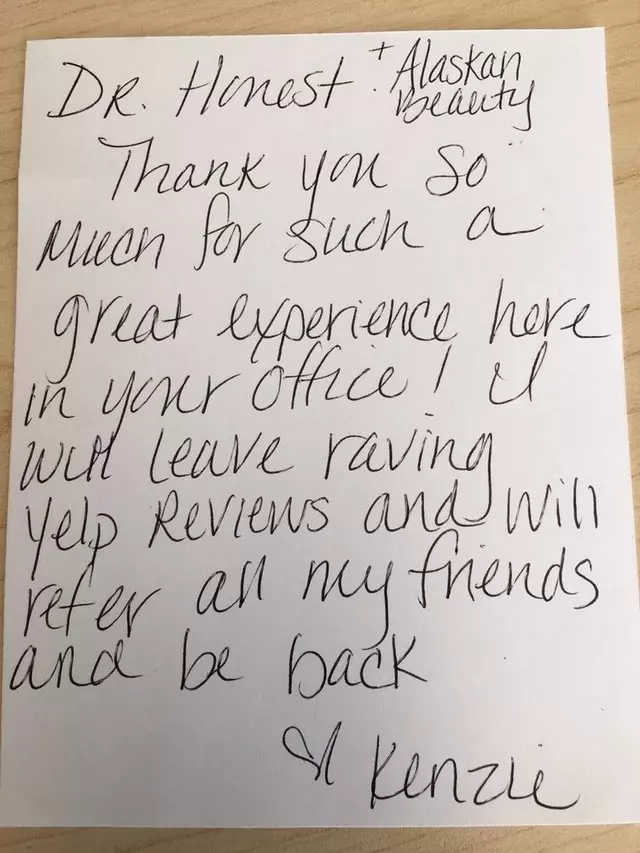 Dr. Honest + Alaskan
Beauty
Thank you so
much for such a
great experience here
in your office! I
will leave raving
Yelp Reviews and will
refer all my friends
and be back
♡ Kenzie